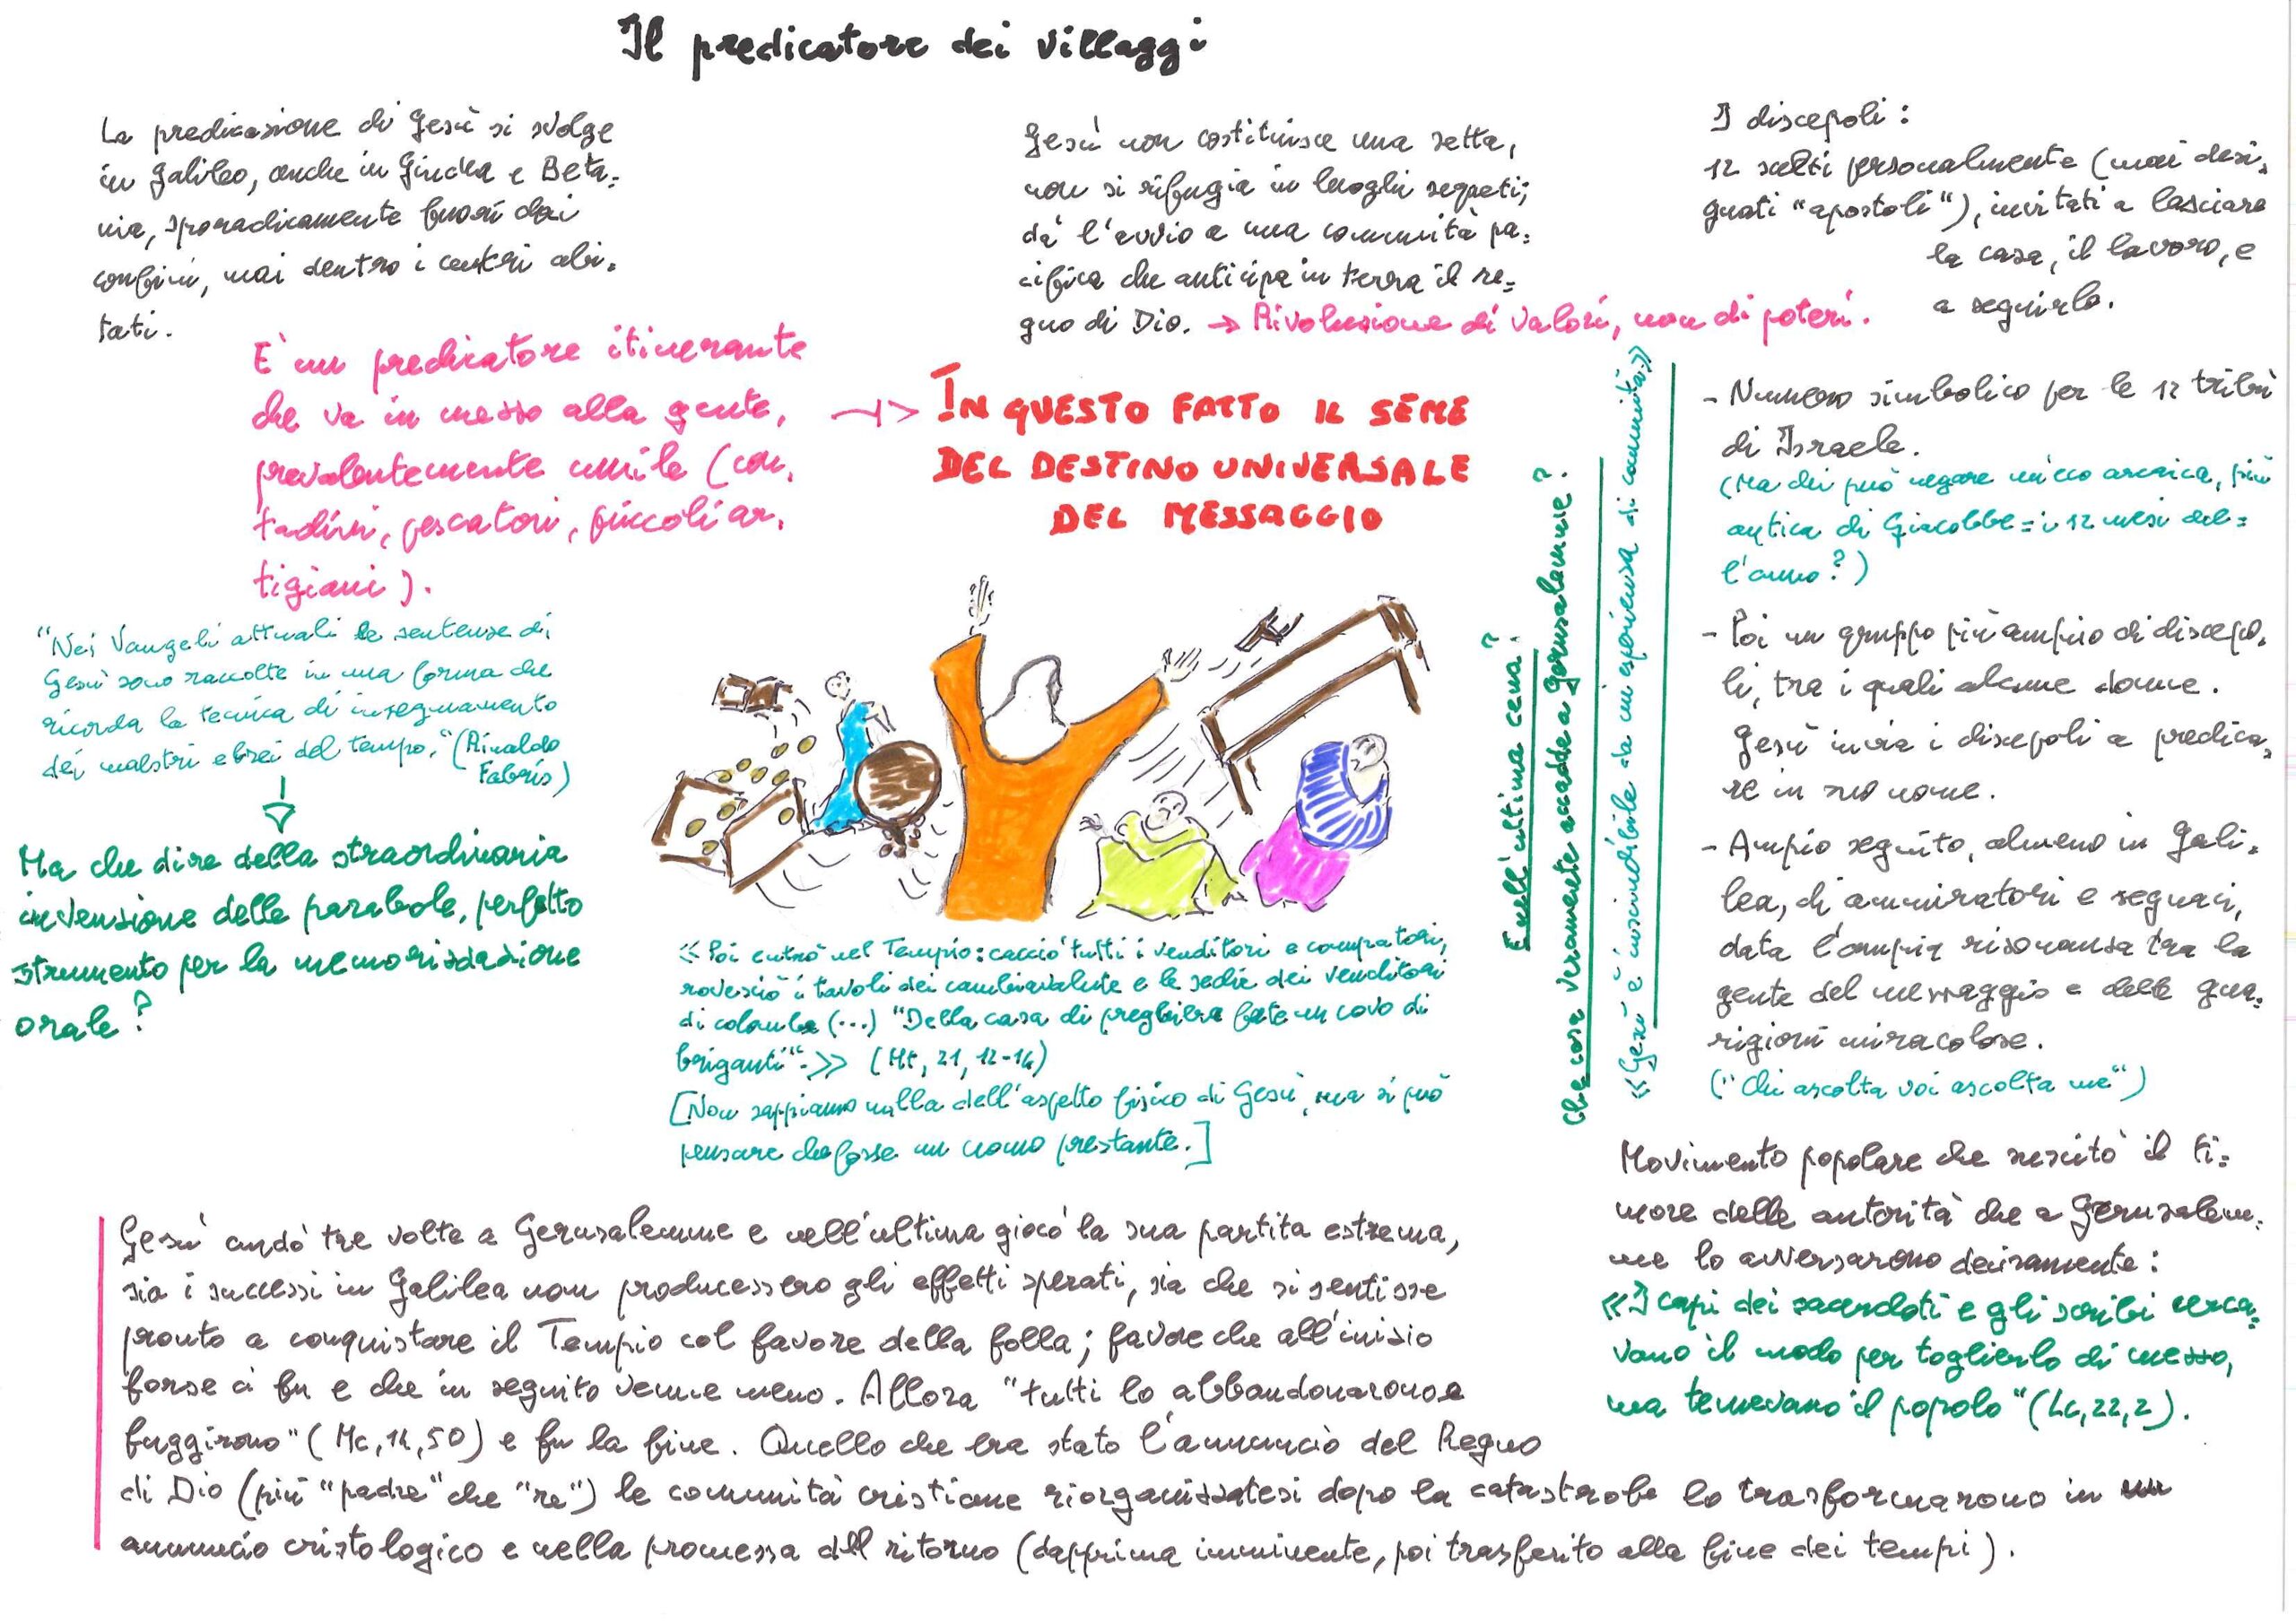 Il predicatore dei villaggi
La predicazione di Gesù si svolge
in Galilea, anche in Giudea e Beta=
nia, sporadicamente fuori dai
confini, mai dentro i centri abi=
tati.
È un predicatore itinerante
che va in mezzo alla gente,
prevalentemente umile (con=
tadini, pescatori, piccoli ar=
tigiani).
→ IN QUESTO FATTO IL SEME
DEL DESTINO UNIVERSALE
DEL MESSAGGIO
"Nei Vangeli attuali le sentenze di
Gesù sono raccolte in una forma che
ricorda la tecnica di insegnamento
dei maestri ebrei del tempo." (Rinaldo
Fabris)
Ma che dire della straordinaria
invenzione delle parabole, perfetto
strumento per la memorizzazione
orale?
Gesù non costituisce una setta,
non si rifugia in luoghi segreti;
dà l'avvio a una comunità pa=
cifica che anticipa in terra il re=
gno di Dio. → Rivoluzione di valori, non di poteri.
«Poi entrò nel Tempio: cacciò tutti i venditori e compratori,
rovesciò i tavoli dei cambiavalute e le sedie dei venditori
di colombe (...) "Della casa di preghiera fate un covo di
briganti".» (Mt, 21, 12-14)
[Non sappiamo nulla dell'aspetto fisico di Gesù, ma si può
pensare che fosse un uomo prestante.]
E nell'ultima cena?
Che cosa veramente accadde a Gerusalemme?
«Gesù è inscindibile da un'esperienza di comunità.»
I discepoli:
12 scelti personalmente (mai desi=
gnati "apostoli"), invitati a lasciare
la casa, il lavoro, e
a seguirlo.
- Numero simbolico per le 12 tribù
di Israele.
(Ma chi può negare un'eco arcaica, più
antica di Giacobbe = i 12 mesi del=
l'anno?)
- Poi un gruppo più ampio di discepo=
li, tra i quali alcune donne.
Gesù invia i discepoli a predica=
re in suo nome.
- Ampio seguito, almeno in Gali=
lea, di ammiratori e seguaci,
data l'ampia risonanza tra la
gente del messaggio e delle gua=
rigioni miracolose.
("Chi ascolta voi ascolta me")
Movimento popolare che suscitò il ti=
more delle autorità che a Gerusalem=
me lo avversarono decisamente:
«I capi dei sacerdoti e gli scribi cerca=
vano il modo per toglierlo di mezzo,
ma temevano il popolo" (Lc, 22, 2).
Gesù andò tre volte a Gerusalemme e nell'ultima giocò la sua partita estrema,
sia i successi in Galilea non producessero gli effetti sperati, sia che si sentisse
pronto a conquistare il Tempio col favore della folla; favore che all'inizio
forse ci fu e che in seguito venne meno. Allora "tutti lo abbandonarono e
fuggirono" (Mc, 14, 50) e fu la fine. Quello che era stato l'annuncio del Regno
di Dio (più "padre" che "re") le comunità cristiane riorganizzatesi dopo la catastrofe lo trasformarono in un
annuncio cristologico e nella promessa del ritorno (dapprima imminente, poi trasferito alla fine dei tempi).